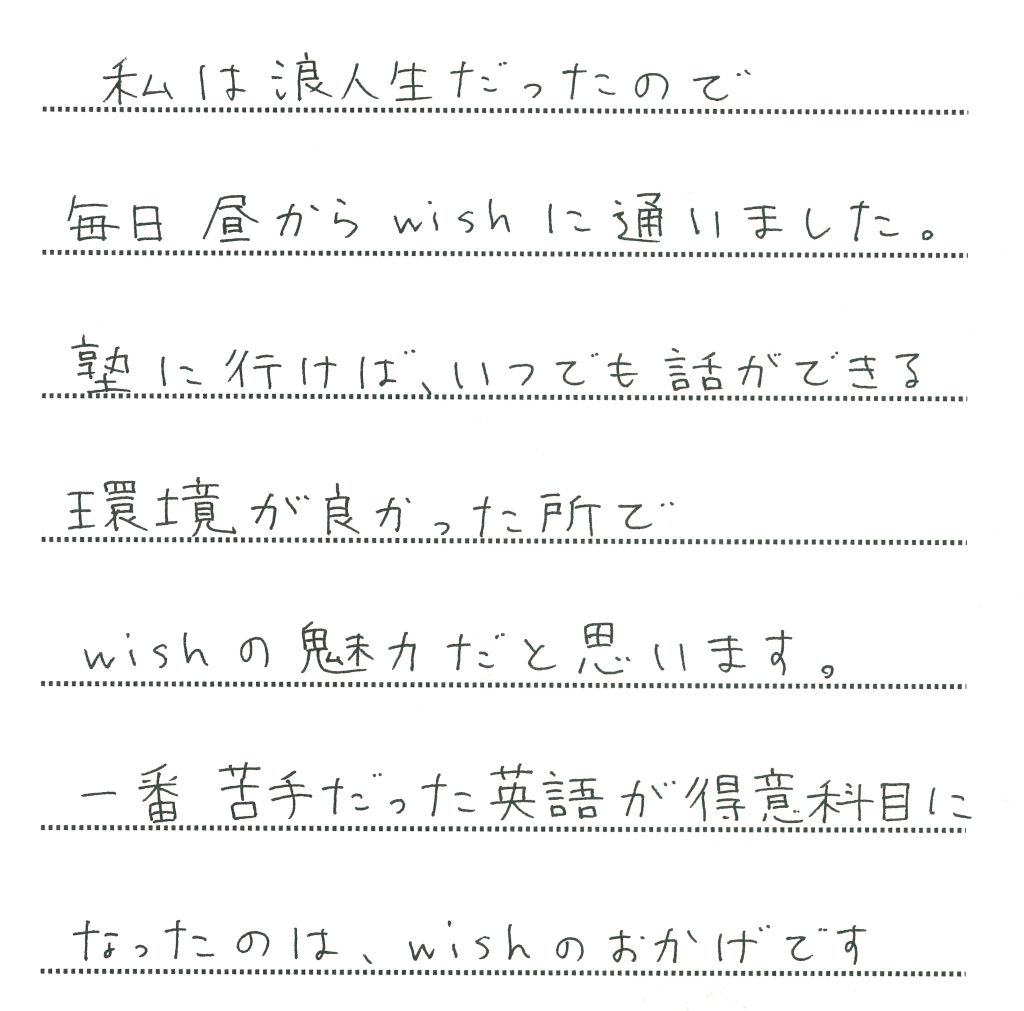 私は浪人生だったので
毎日昼からwishに通いました。
塾に行けば、いつでも話ができる
環境が良かった所で
wishの魅力だと思います。
一番苦手だった英語が得意科目に
なったのは、wishのおかげです